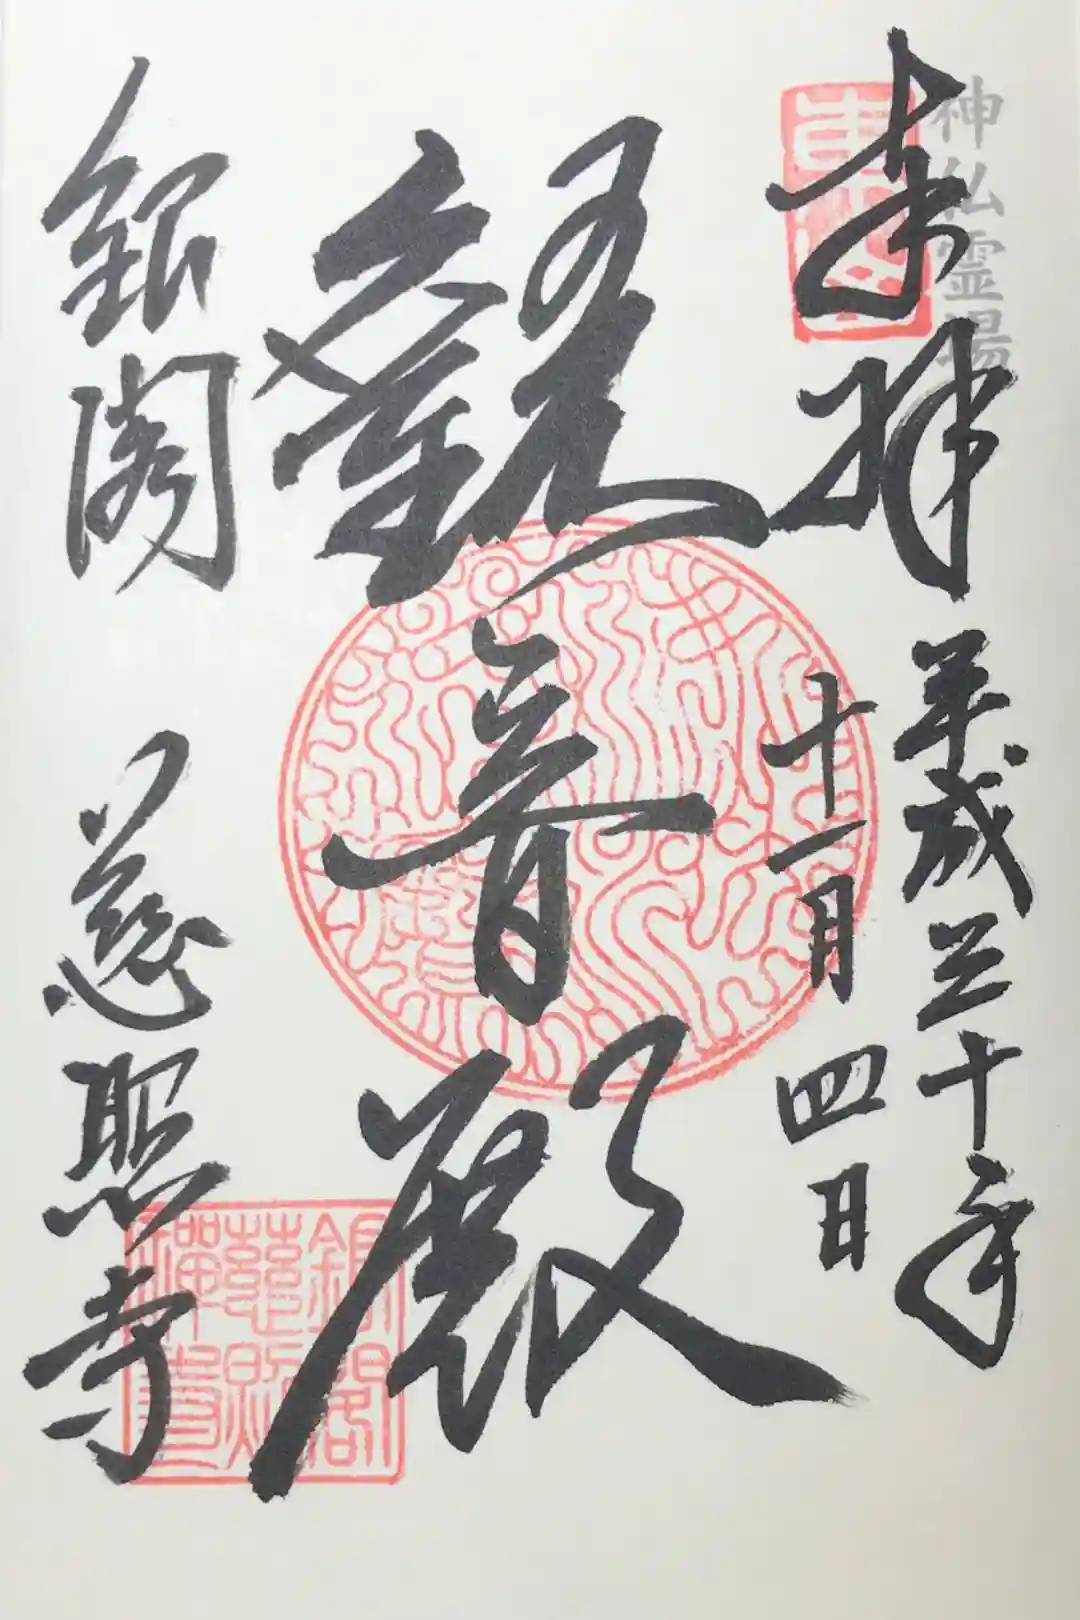 神仏霊場
奉拝
平成三十年
十一月四日
觀音殿
銀閣
慈照寺
銀閣
慈照
禅寺